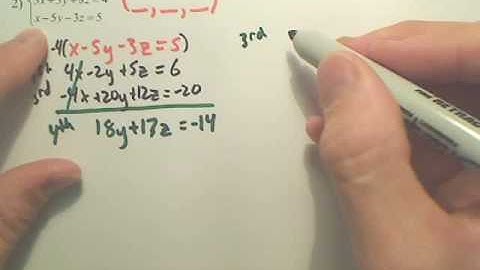 2) 3x+3y+3z=4 (_,_,_)
x-5y-3z=5
-4(x-5y-3z=5) 3rd
4x-2y+5z=6
3rd -4x+20y+12z=-20
4th 18y+17z=-14